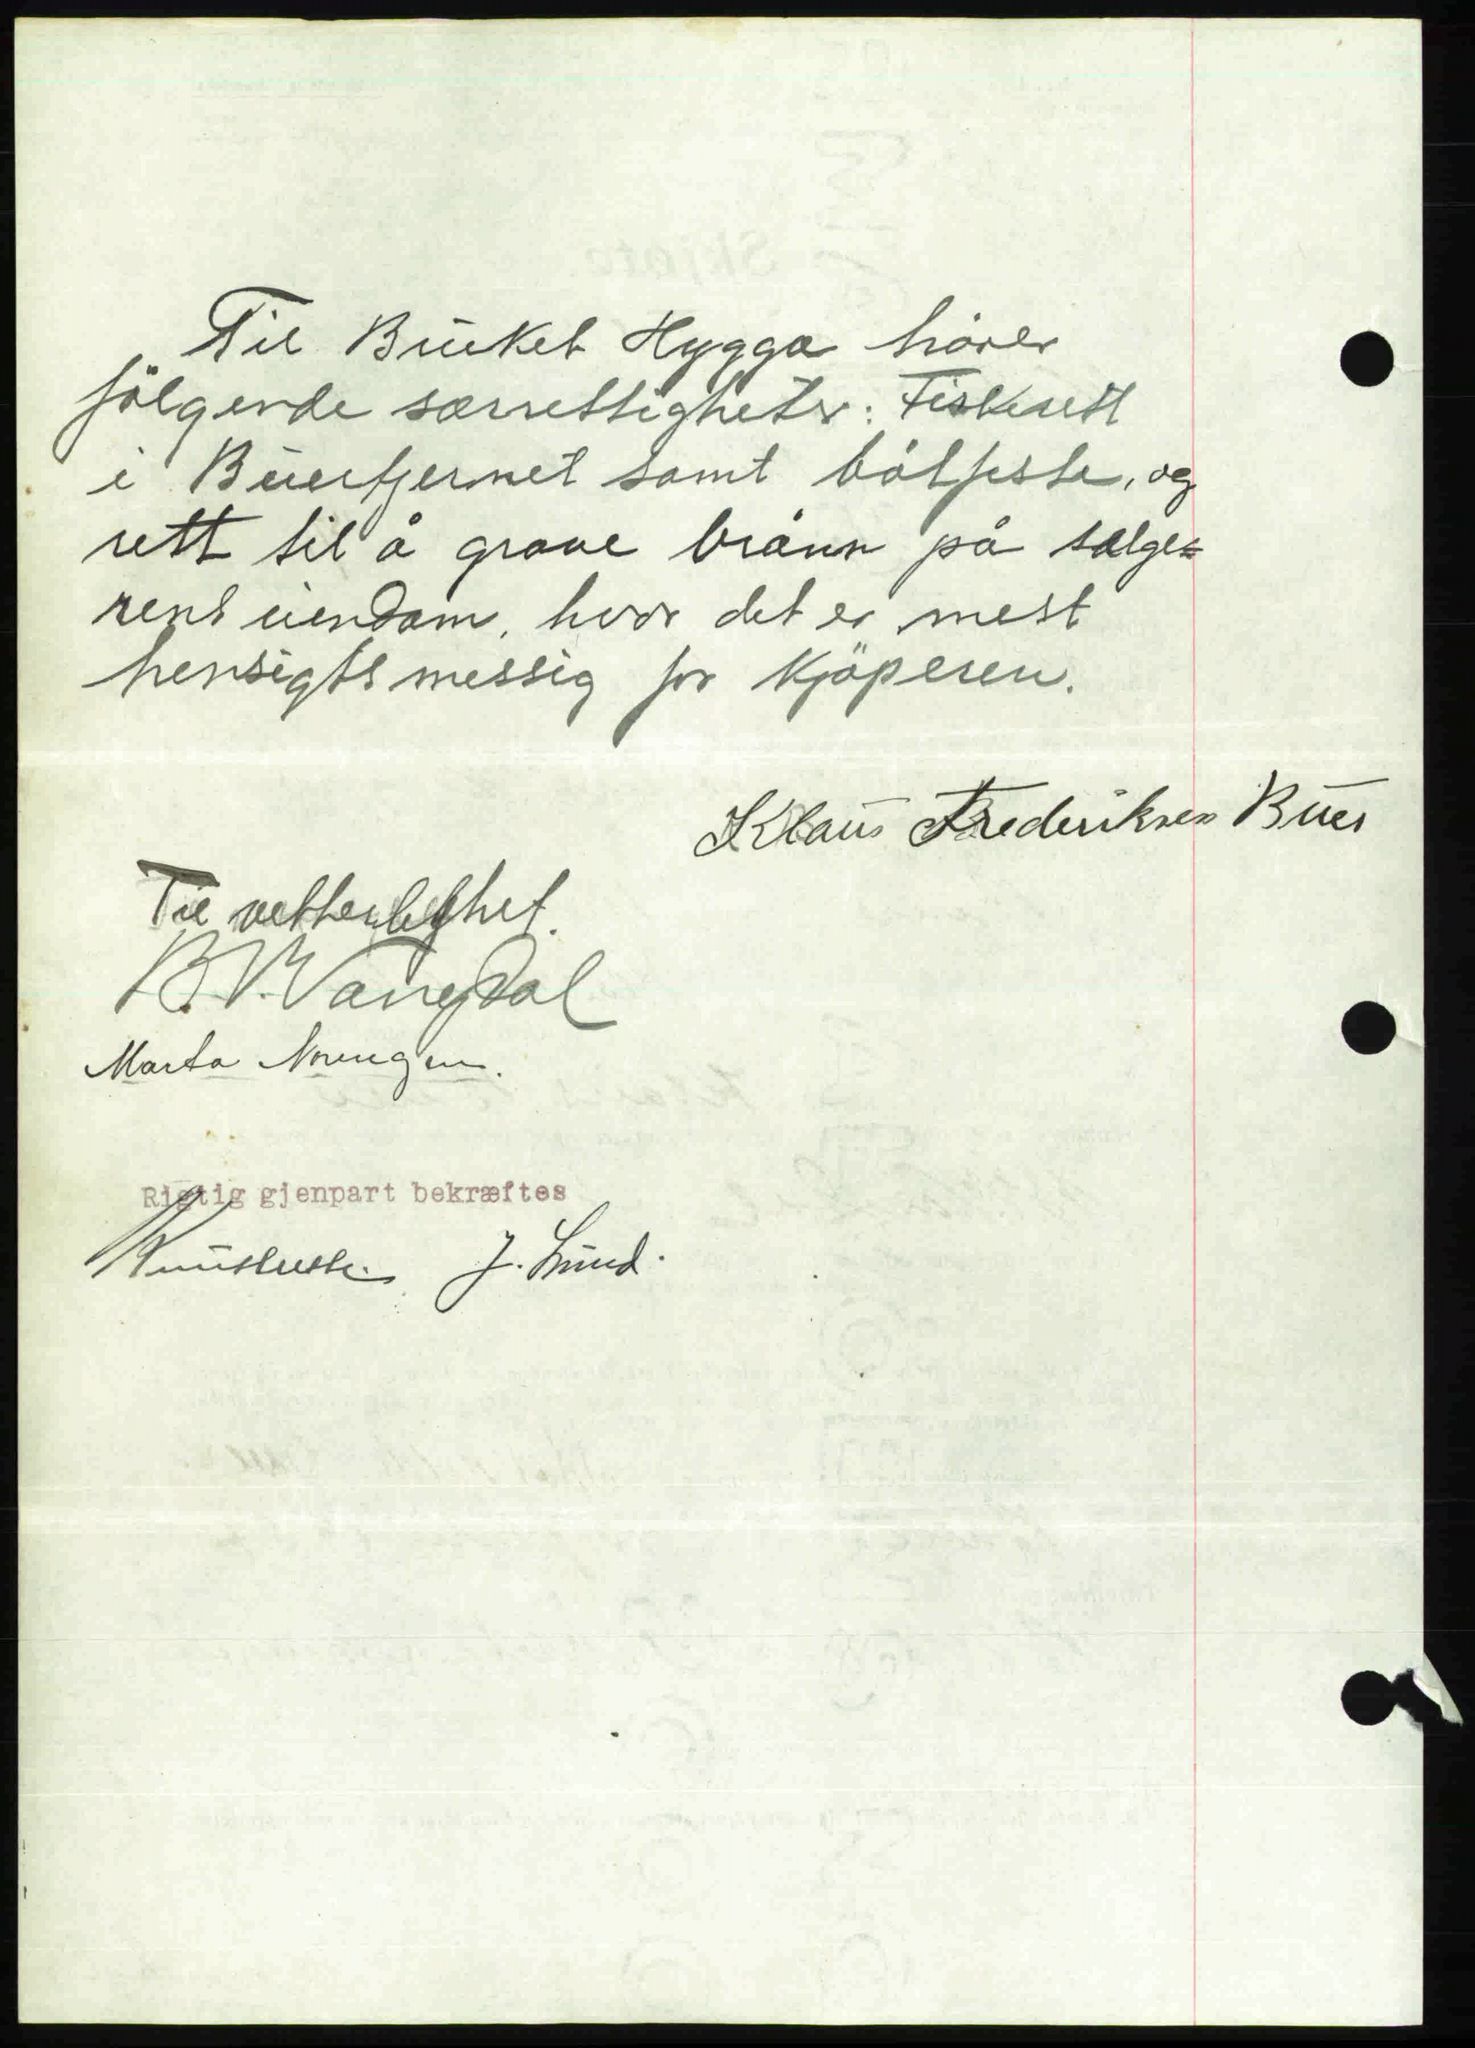 Til Bruket Hygga hörer
fölgende særrettigheter: Fiskerett
i Buertjernet samt båtfeste, og
rett til å grave brönn på selge=
rens eiendom, hvor det er mest
hensigtsmessig for kjöperen.
Klaus Frederiksen Buer
Til vitterlighet.
B. V. Vangdal
Marta
Rigtig gjenpart bekræftes
J. Lund.